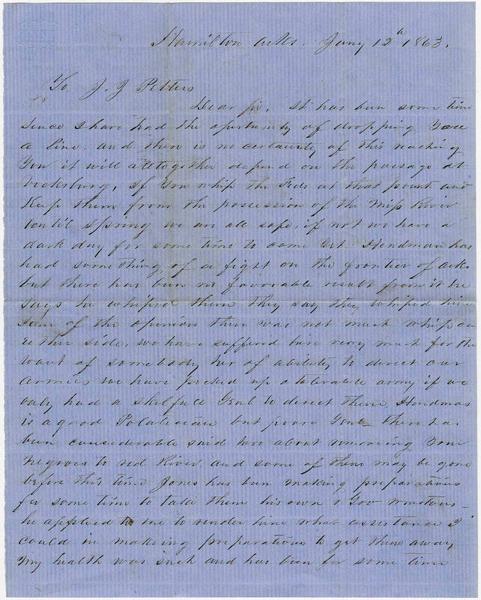 Hamilton Arks. Jany 12th 1863.
To J. J. Pettus
Dear sir, it has been some time
since I have had the opertunity of dropping you
a line. and there is no certainty of this reaching
you it will altogether depend on the passage at
Vicksburg, if you whip the Feds at that point and
keep them from the possession of the Miss River
until spring we are all safe if not we have a
dark day for some time to come. Hindman has
had something of a fight on the frontier of Arks
but there has been no favorable result from it he
says he whiped them they say they whiped him
I am of the opinion there was not much whip on
either side, we have suffered here very much for the
want of somebody of ability to direct our
armies we have picked up a tolerable army if we
only had a skilfull Genl to direct them, Hindman
is a good Polatician but poor Genl there has
been considerable said here about removing your
negroes to red River and some of them may be gone
before this time Jones has been making preparations
for some time to take them his own & Gov
he applied to me to render him what assistance I
could in making preparations to get them away
my health was such and has been for some time